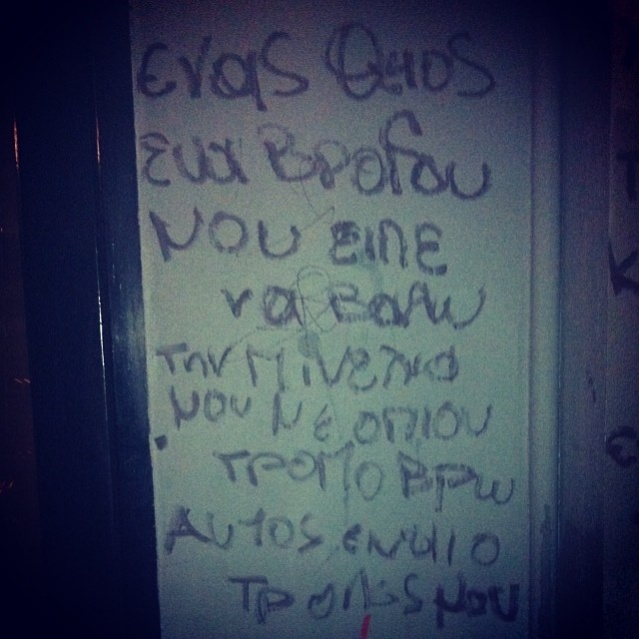 ενας Θειος
ενα Βραδυ
μου ειπε
να βαλω
την πινελια
μου με οπιου
τροπο βρω
Αυτος ειναι ο
τροπος μου